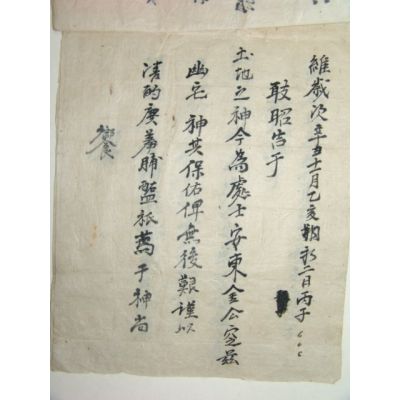 維歲次辛丑十一月乙亥朔初二日丙子
敢昭告于
土地之神今為處士安東金公窆玆
幽宅 神其保佑俾無後艱謹以
清酌庚羞脯醢祗薦于神尚
饗